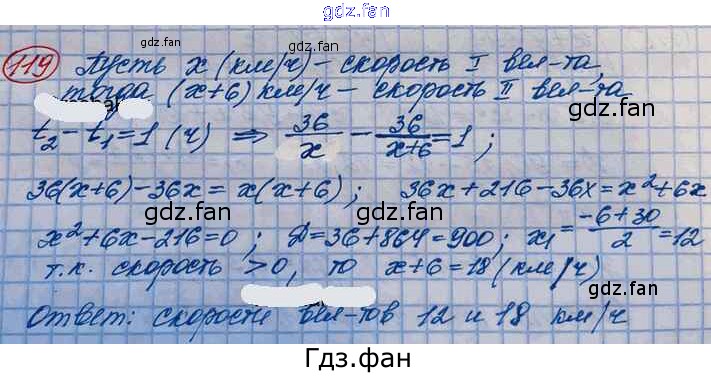 gdz.fan
119 Пусть x (км/ч) – скорость I вел-та, gdz.fan
gdz.fan тогда (x+6) км/ч – скорость II вел-та
t₂ – t₁ = 1 (ч) ⇒ 36/x – 36/(x+6) = 1 ;
gdz.fan
36(x+6) – 36x = x(x+6) ; 36x + 216 – 36x = x² + 6x
gdz.fan gdz.fan
x² + 6x – 216 = 0 ; D = 36 + 864 = 900 ; x₁ = (–6+30)/2 = 12
т.к. скорость > 0, то x + 6 = 18 (км/ч)
gdz.fan gdz.fan
Ответ: скорости вел-тов 12 и 18 км/ч
Гдз.фан